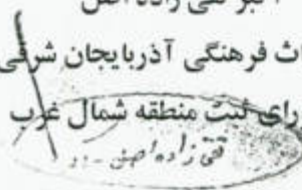 اکبر تقی زاده اصل
اث فرهنگی آذربایجان شرقی
رای ثبت منطقه شمال غرب
تقی زاده اصل